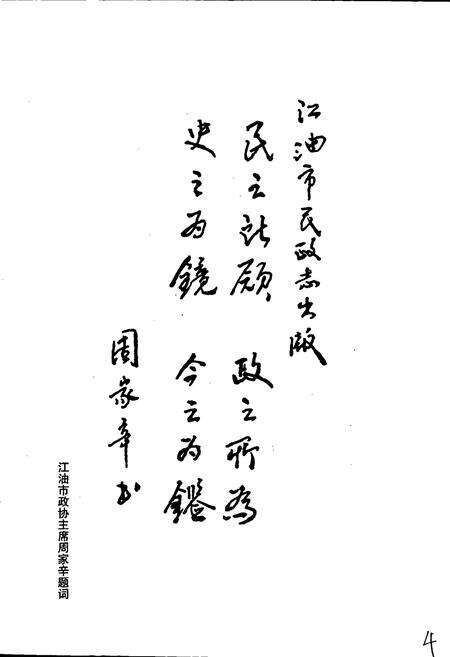 江油市民政志出版
民之所愿 政之所为
史之为镜 今之为鑑
周家辛书
江油市政协主席周家辛题词
4